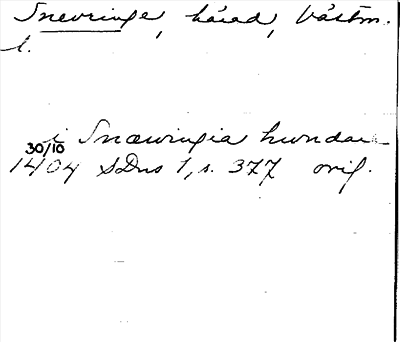 Snevringe, härad, Västm.
l.
i Snæwringia hundare
30/10
1404 SDns 1, s. 377 orig.